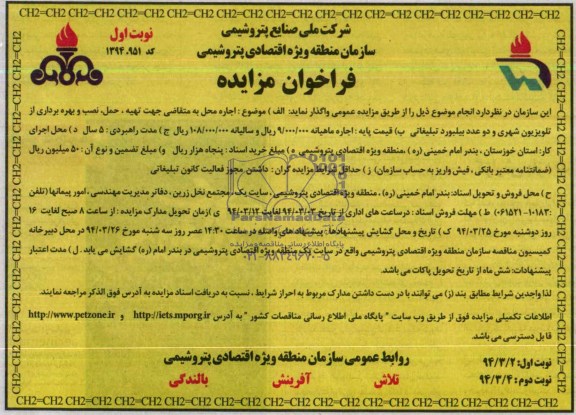 CH2=CH2 CH2=CH2 CH2=CH2 CH2=CH2 CH2=CH2 CH2=CH2 CH2=CH2 CH2=CH2 CH2=CH2 CH2=CH2
شرکت ملی صنایع پتروشیمی
نوبت اول
سازمان منطقه ویژه اقتصادی پتروشیمی
کد ۱۳۹۴.۹۵۱
فراخوان مزایده
این سازمان در نظر دارد انجام موضوع ذیل را از طریق مزایده عمومی واگذار نماید: الف) موضوع : اجاره محل به متقاضی جهت تهیه ، حمل، نصب و بهره برداری از
تلویزیون شهری و دو عدد بیلبورد تبلیغاتی ب) قیمت پایه : اجاره ماهیانه ۹/۰۰۰/۰۰۰ ریال و سالیانه ۱۰۸/۰۰۰/۰۰۰ ریال ج) مدت راهبردی : ۵ سال د) محل اجرای
کار: استان خوزستان ، بندر امام خمینی (ره) ،منطقه ویژه اقتصادی پتروشیمی ه) مبلغ خرید اسناد : پنجاه هزار ریال و) مبلغ تضمین و نوع آن : ۵۰ میلیون ریال
(ضمانتنامه معتبر بانکی ، فیش واریز به حساب سازمان) ز) حداقل شرایط مزایده گران: داشتن مجوز فعالیت کانون تبلیغاتی
ح) محل فروش و تحویل اسناد: بندر امام خمینی (ره) ، منطقه ویژه اقتصادی پتروشیمی ، سایت یک ، مجتمع نخل زرین ، دفاتر مدیریت مهندسی ، امور پیمانها (تلفن
۰۶۱۵۲۱۰۱۸۳) ط) مهلت فروش اسناد : درساعت های اداری از تاریخ ۹۴/۰۳/۰۳ لغایت ۹۴/۰۳/۱۲ ی) زمان تحویل مدارک مزایده : از ساعت ۸ صبح لغایت ۱۶
روز دوشنبه مورخ ۹۴/۰۳/۲۵ ک) تاریخ و محل گشایش پیشنهادها : پیشنهادهای واصله در ساعت ۱۴:۳۰ عصر روز سه شنبه مورخ ۹۴/۰۳/۲۶ در محل دبیرخانه
کمیسیون مناقصه سازمان منطقه ویژه اقتصادی پتروشیمی واقع در سایت یک منطقه ویژه اقتصادی پتروشیمی در بندر امام (ره) گشایش می یابد . ل) مدت اعتبار
پیشنهادات: شش ماه از تاریخ تحویل پاکات می باشد.
لذا واجدین شرایط مطابق بند (ز) می توانند با در دست داشتن مدارک مربوط به احراز شرایط ، نسبت به دریافت اسناد مزایده به آدرس فوق الذکر مراجعه نمایند.
اطلاعات تکمیلی مزایده فوق از طریق وب سایت " پایگاه ملی اطلاع رسانی مناقصات کشور " به آدرس http://iets.mporg.ir و http://www.petzone.ir
قابل دسترسی می باشد.
نوبت اول: ۹۴/۳/۲
روابط عمومی سازمان منطقه ویژه اقتصادی پتروشیمی
نوبت دوم: ۹۴/۳/۴
تلاش آفرینش بالندگی
CH2=CH2 CH2=CH2 CH2=CH2 CH2=CH2 CH2=CH2 CH2=CH2 CH2=CH2 CH2=CH2 CH2=CH2 CH2=CH2